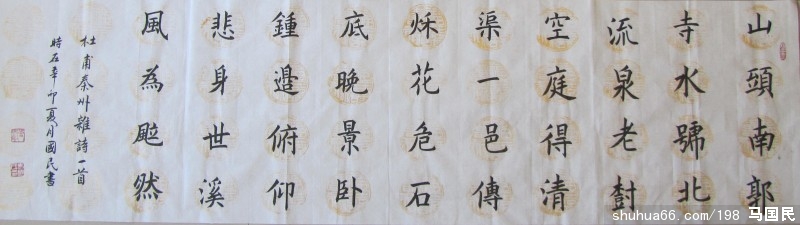 山頭南郭
寺水號北
流泉老樹
空庭得清
渠一邑傳
秌花危石
底晚景臥
鍾邉俯仰
悲身世溪
風為颭然
杜甫秦州雜詩一首
時在辛卯夏月國民書
shuhua66.com/198 马国民